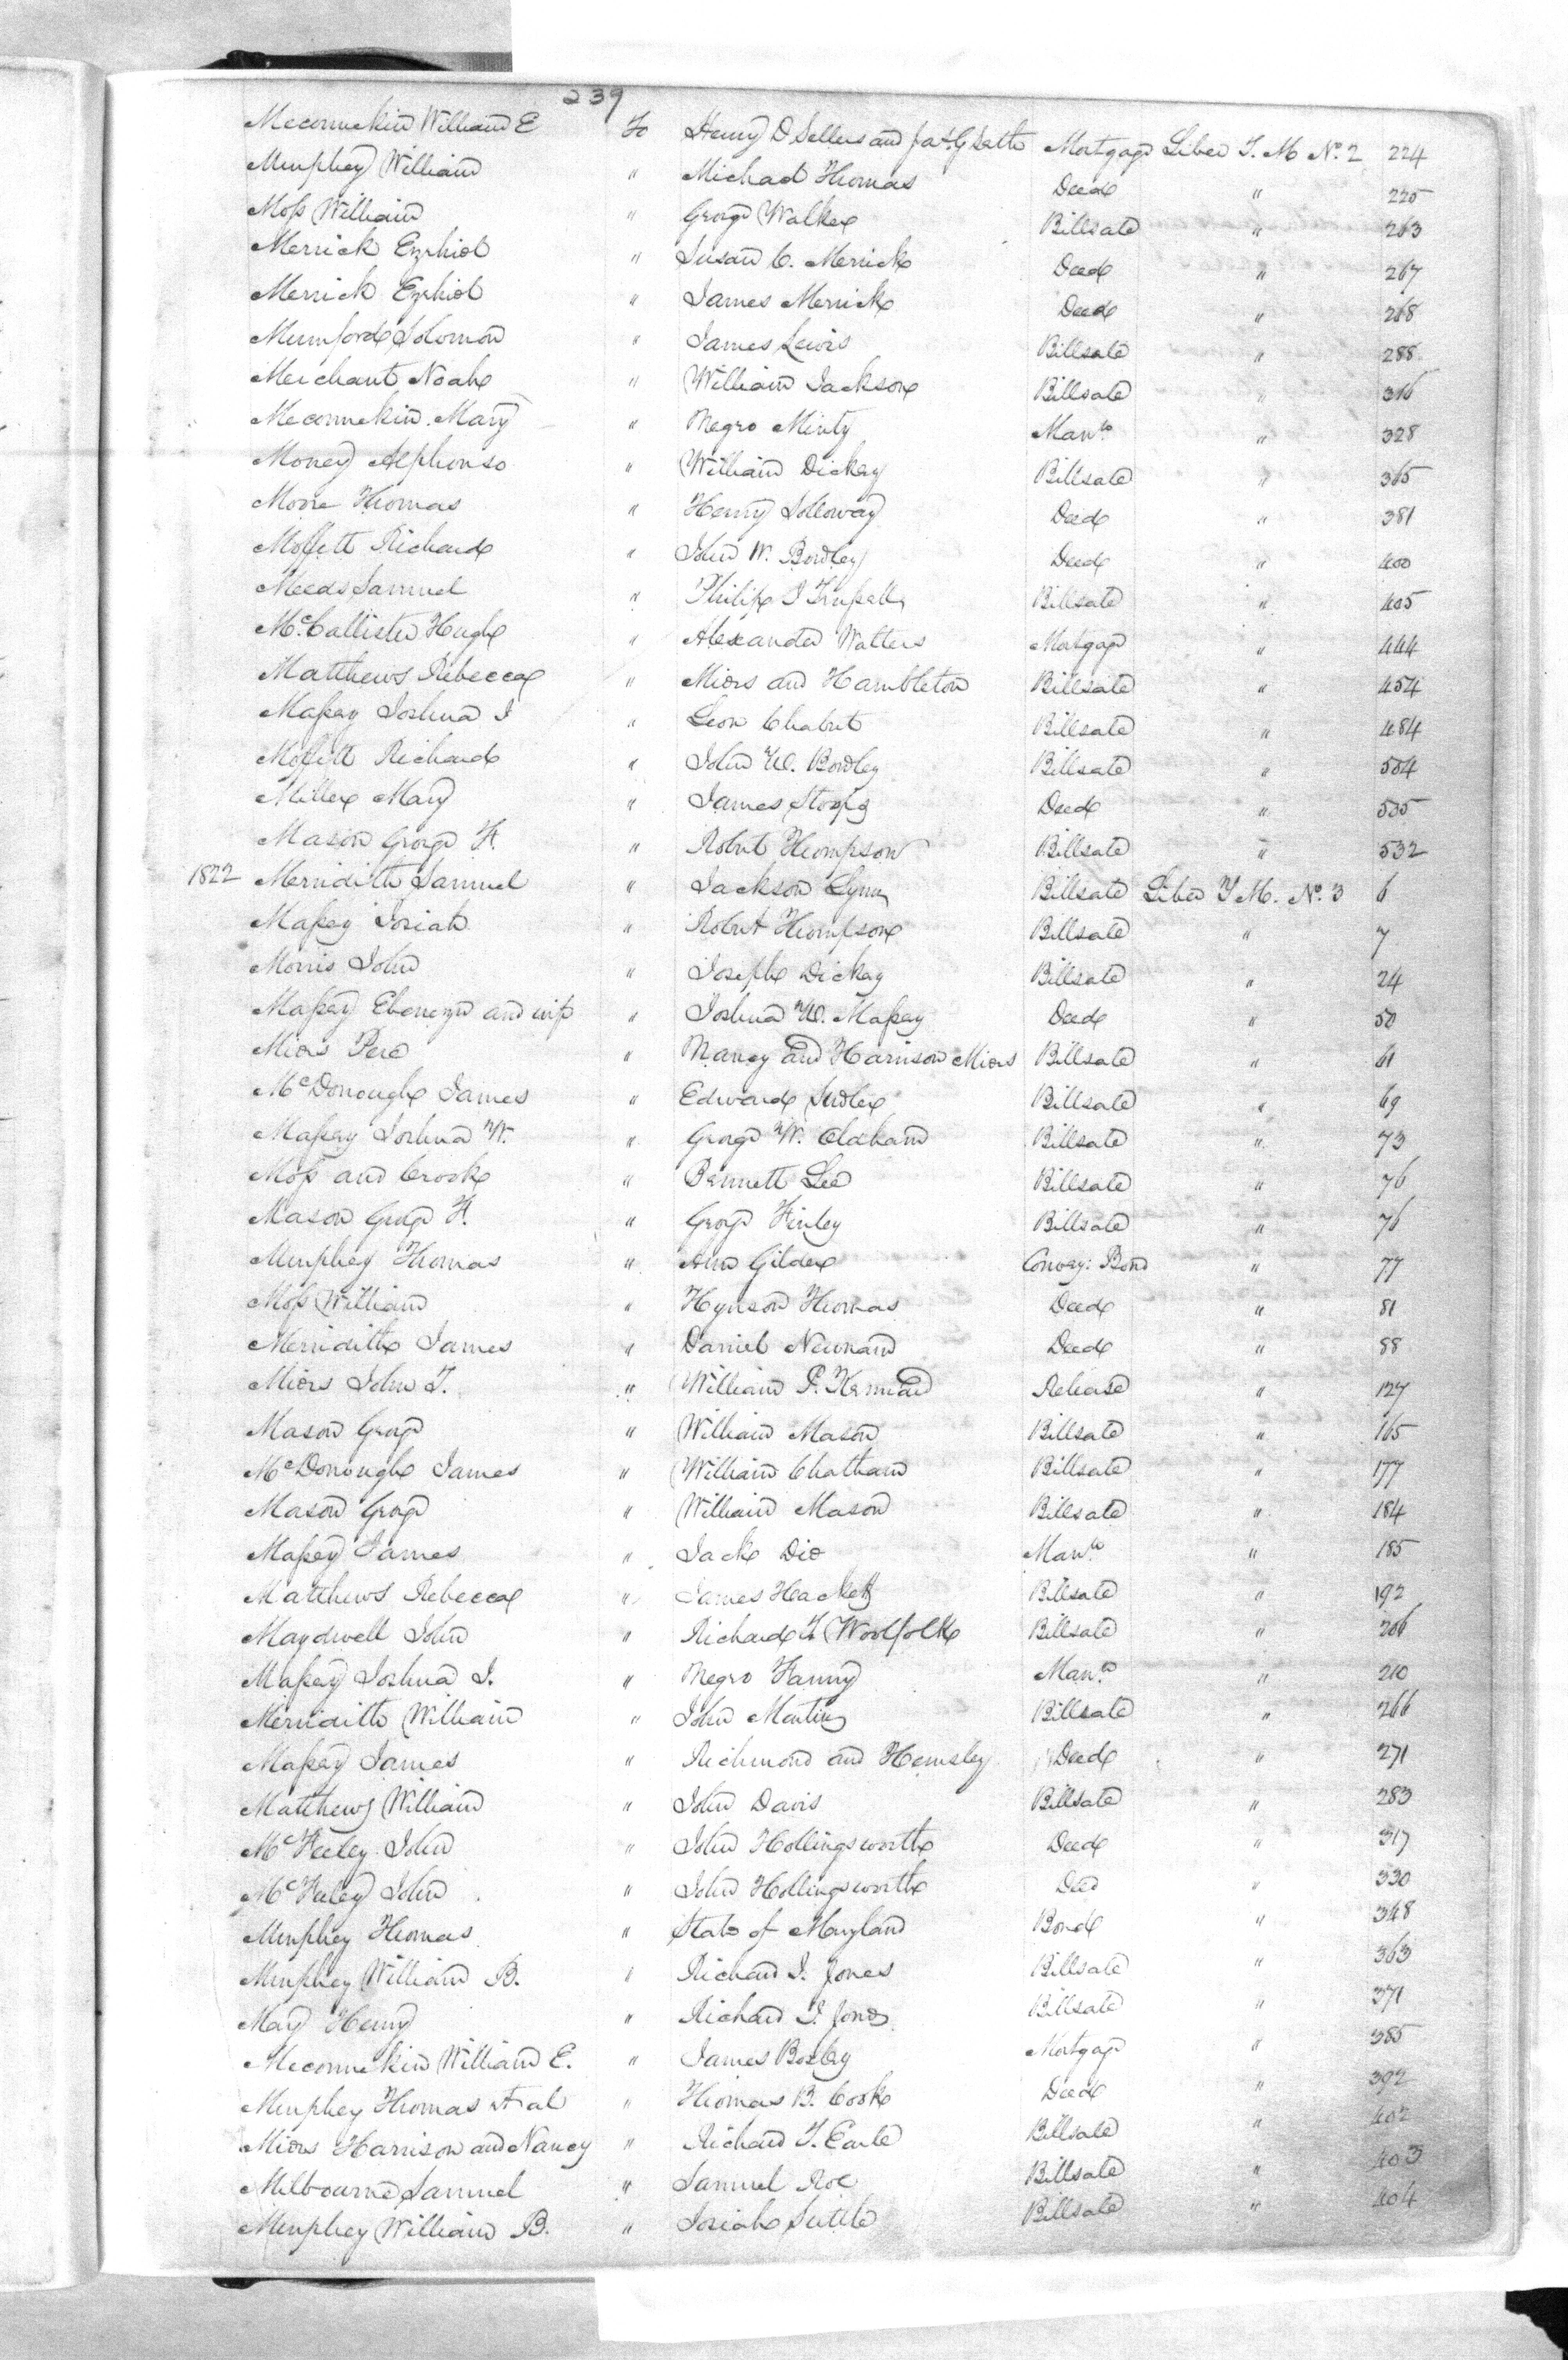 239
Meconnekin William E to Henry D Sellers and Jas. G Seth Mortgage Liber T. M No. 2 224
Murphey William " Michael Thomas Deed " 225
Moss William " George Walker Billsale " 263
Merrick Ezekiel " Susan C. Merrick Deed " 267
Merrick Ezekiel " James Merrick Deed " 268
Mumford Solomon " James Lewis Billsale " 288
Merchant Noah " William Jackson Billsale " 316
Meconnekin Mary " Negro Minty Mann. " 328
Money Alphonso " William Dickey Billsale " 365
Moore Thomas " Henry Solloway Deed " 381
Moffett Richard " John W. Bordley Deed " 400
Meeds Samuel " Philip I Billsale " 405
McCallister Hugh " Alexander Walters Mortgage " 444
Matthews Rebecca " Miers and Hambleton Billsale " 454
Massey Joshua I " Leon Chabert Billsale " 484
Moffett Richard " John W. Bordley Billsale " 504
Miller Mary " James Stoops Deed " 535
Mason George F. " Robert Thompson Billsale " 532
1822 Merridith Samuel " Jackson Lynn Billsale Liber T M. No. 3 6
Massey Josiah " Robert Thompson Billsale " 7
Morris John " Joseph Dickey Billsale " 24
Massey Ebenezer and wife " Joshua W. Massey Deed " 50
Miers Pere " Nancy and Harrison Miers Billsale " 61
McDonough James " Edward Sudler Billsale " 69
Massey Joshua W. " George W. Oldham Billsale " 73
Moss and Crook " Bennett Lee Billsale " 76
Mason George F. " George Finley Billsale " 76
Murphey Thomas " Ann Gilder Convey: Bond " 77
Moss William " Hynson Thomas Deed " 81
Merridith James " Daniel Newnam Deed " 88
Miers John T. " William P. Kennard Release " 127
Mason George " William Mason Billsale " 165
McDonough James " William Chatham Billsale " 177
Mason George " William Mason Billsale " 184
Massey James " Jack Dio Mann. " 185
Matthews Rebecca " James Hackett Billsale " 192
Maydwell John " Richard T Woolfolk Billsale " 206
Massey Joshua I. " Negro Fanny Mann. " 210
Merridith William " John Martin Billsale " 266
Massey James " Richmond and Hemsley Deed " 271
Matthews William " John Davis Billsale " 283
McFeeley John " John Hollingsworth Deed " 317
McFeeley John " John Hollingsworth Deed " 330
Murphey Thomas " State of Maryland Bond " 348
Murphey William B. " Richard I. Jones Billsale " 363
May Henry " Richard I. Jones Billsale " 371
Meconnekin William E. " James Boxley Mortgage " 385
Murphey Thomas et al " Thomas B. Cook Deed " 392
Miers Harrison and Nancy " Richard T. Earle Billsale " 402
Milbourne Samuel " Samuel Roe Billsale " 403
Murphey William B. " Josiah Suttle Billsale " 404